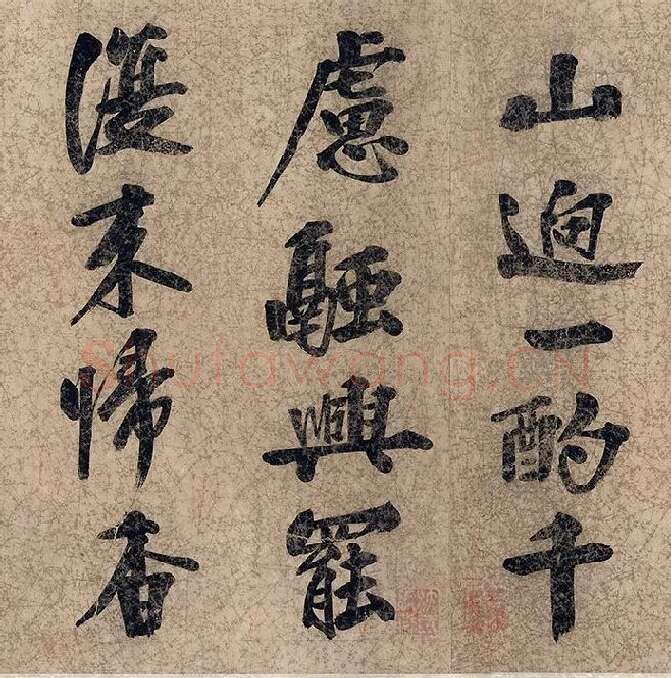 山逈一酌千
慮驅興罷
復未歸香
Shufawang.CN